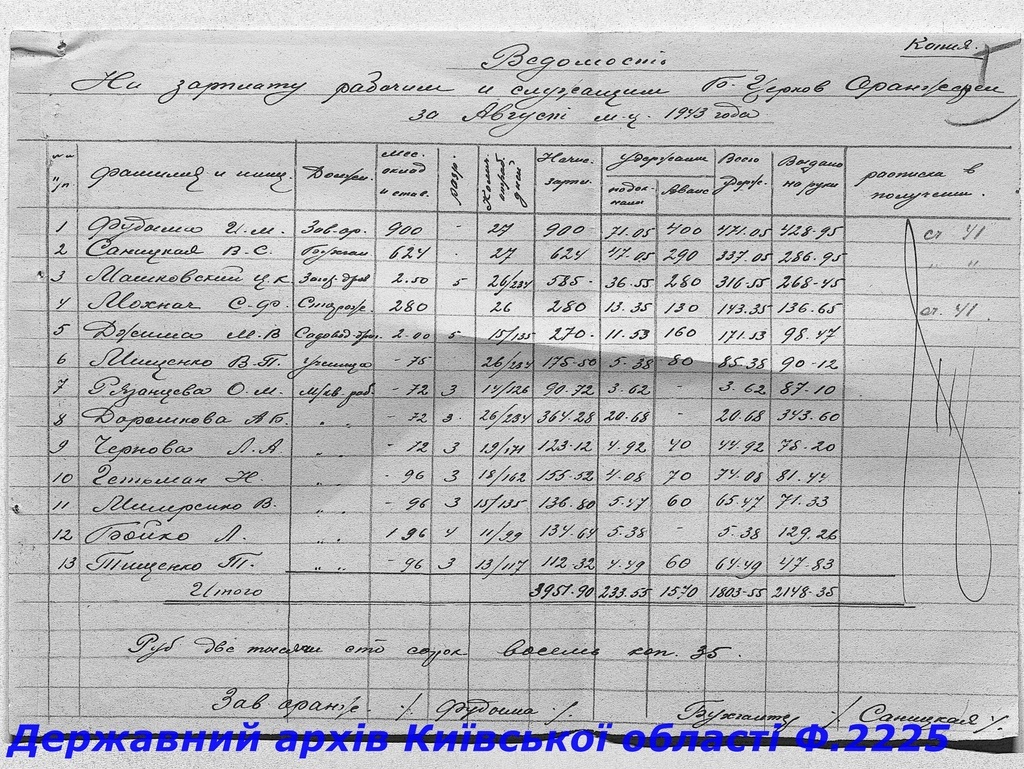 Копия.
Ведомость
На зарплату рабочим и служащим Б-Церков Оранжереи
за Август м-ц. 1943 года
фамилия и иниц. Должн. мес. оклад и став. разр. Колич. отраб. дней Начис. зарпл. удержания Всего удерж. Выдано на руки расписка в получении.
Аванс
1 Фудыма И.М. Зав.ор. 900 - 27 900 - 71.05 400 471.05 428-95 сч. 41
2 Саницкая В.С. Бухгал 624 - 27 624 47.05 290 337.05 286.95 " "
3 Машковский Ц.К 2.50 5 26/234 585- 36.55 280 316.55 268-45
4 Мохнач С.Ф. Сторож. 280 26 280 13.35 130 143.35 136.65 сч. 41.
5 Джима М.В Садовод 2.00 5 15/135 270- 11.53 160 171.53 98.47
6 Мищенко В.П. ученица - 75 26/234 175-50 5.38 80 85.38 90-12
7 Рязанцева О.М. раб. - 72 3 14/126 90.72 3.62 - 3.62 87-10
8 Дорошкова А.Б. " " - 72 3 26/234 364.28 20.68 - 20.68 343.60
9 Чернова Л.А. " " - 72 3 19/171 123-12 4.92 40 44.92 78-20
10 Гетьман Н. " " - 96 3 18/162 155.52 4.08 70 74.08 81.44
11 В. " " - 96 3 15/135 136.80 5.47 60 65.47 71.33
12 Бойко Л. " " 1 96 4 11/99 134.64 5.38 - 5.38 129.26
13 Тищенко Т. " " - 96 3 13/117 112.32 4.49 60 64.49 47-83
Итого 3951.90 233.55 1570 1803-55 2148-35
Руб две тысячи сто сорок восемь коп. 35.
Зав оранж. /. Фудыма /. Бухгалтер /. Саницкая /.
Державний архів Київської області Ф.2225